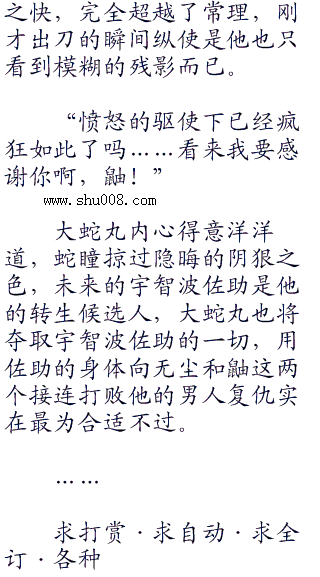 之快，完全超越了常理，刚
才出刀的瞬间纵使是他也只
看到模糊的残影而已。
“愤怒的驱使下已经疯
狂如此了吗……看来我要感
谢你啊，鼬！”
www.shu008.com
大蛇丸内心得意洋洋
道，蛇瞳掠过隐晦的阴狠之
色，未来的宇智波佐助是他
的转生候选人，大蛇丸也将
夺取宇智波佐助的一切，用
佐助的身体向无尘和鼬这两
个接连打败他的男人复仇实
在最为合适不过。
……
求打赏·求自动·求全
订·各种